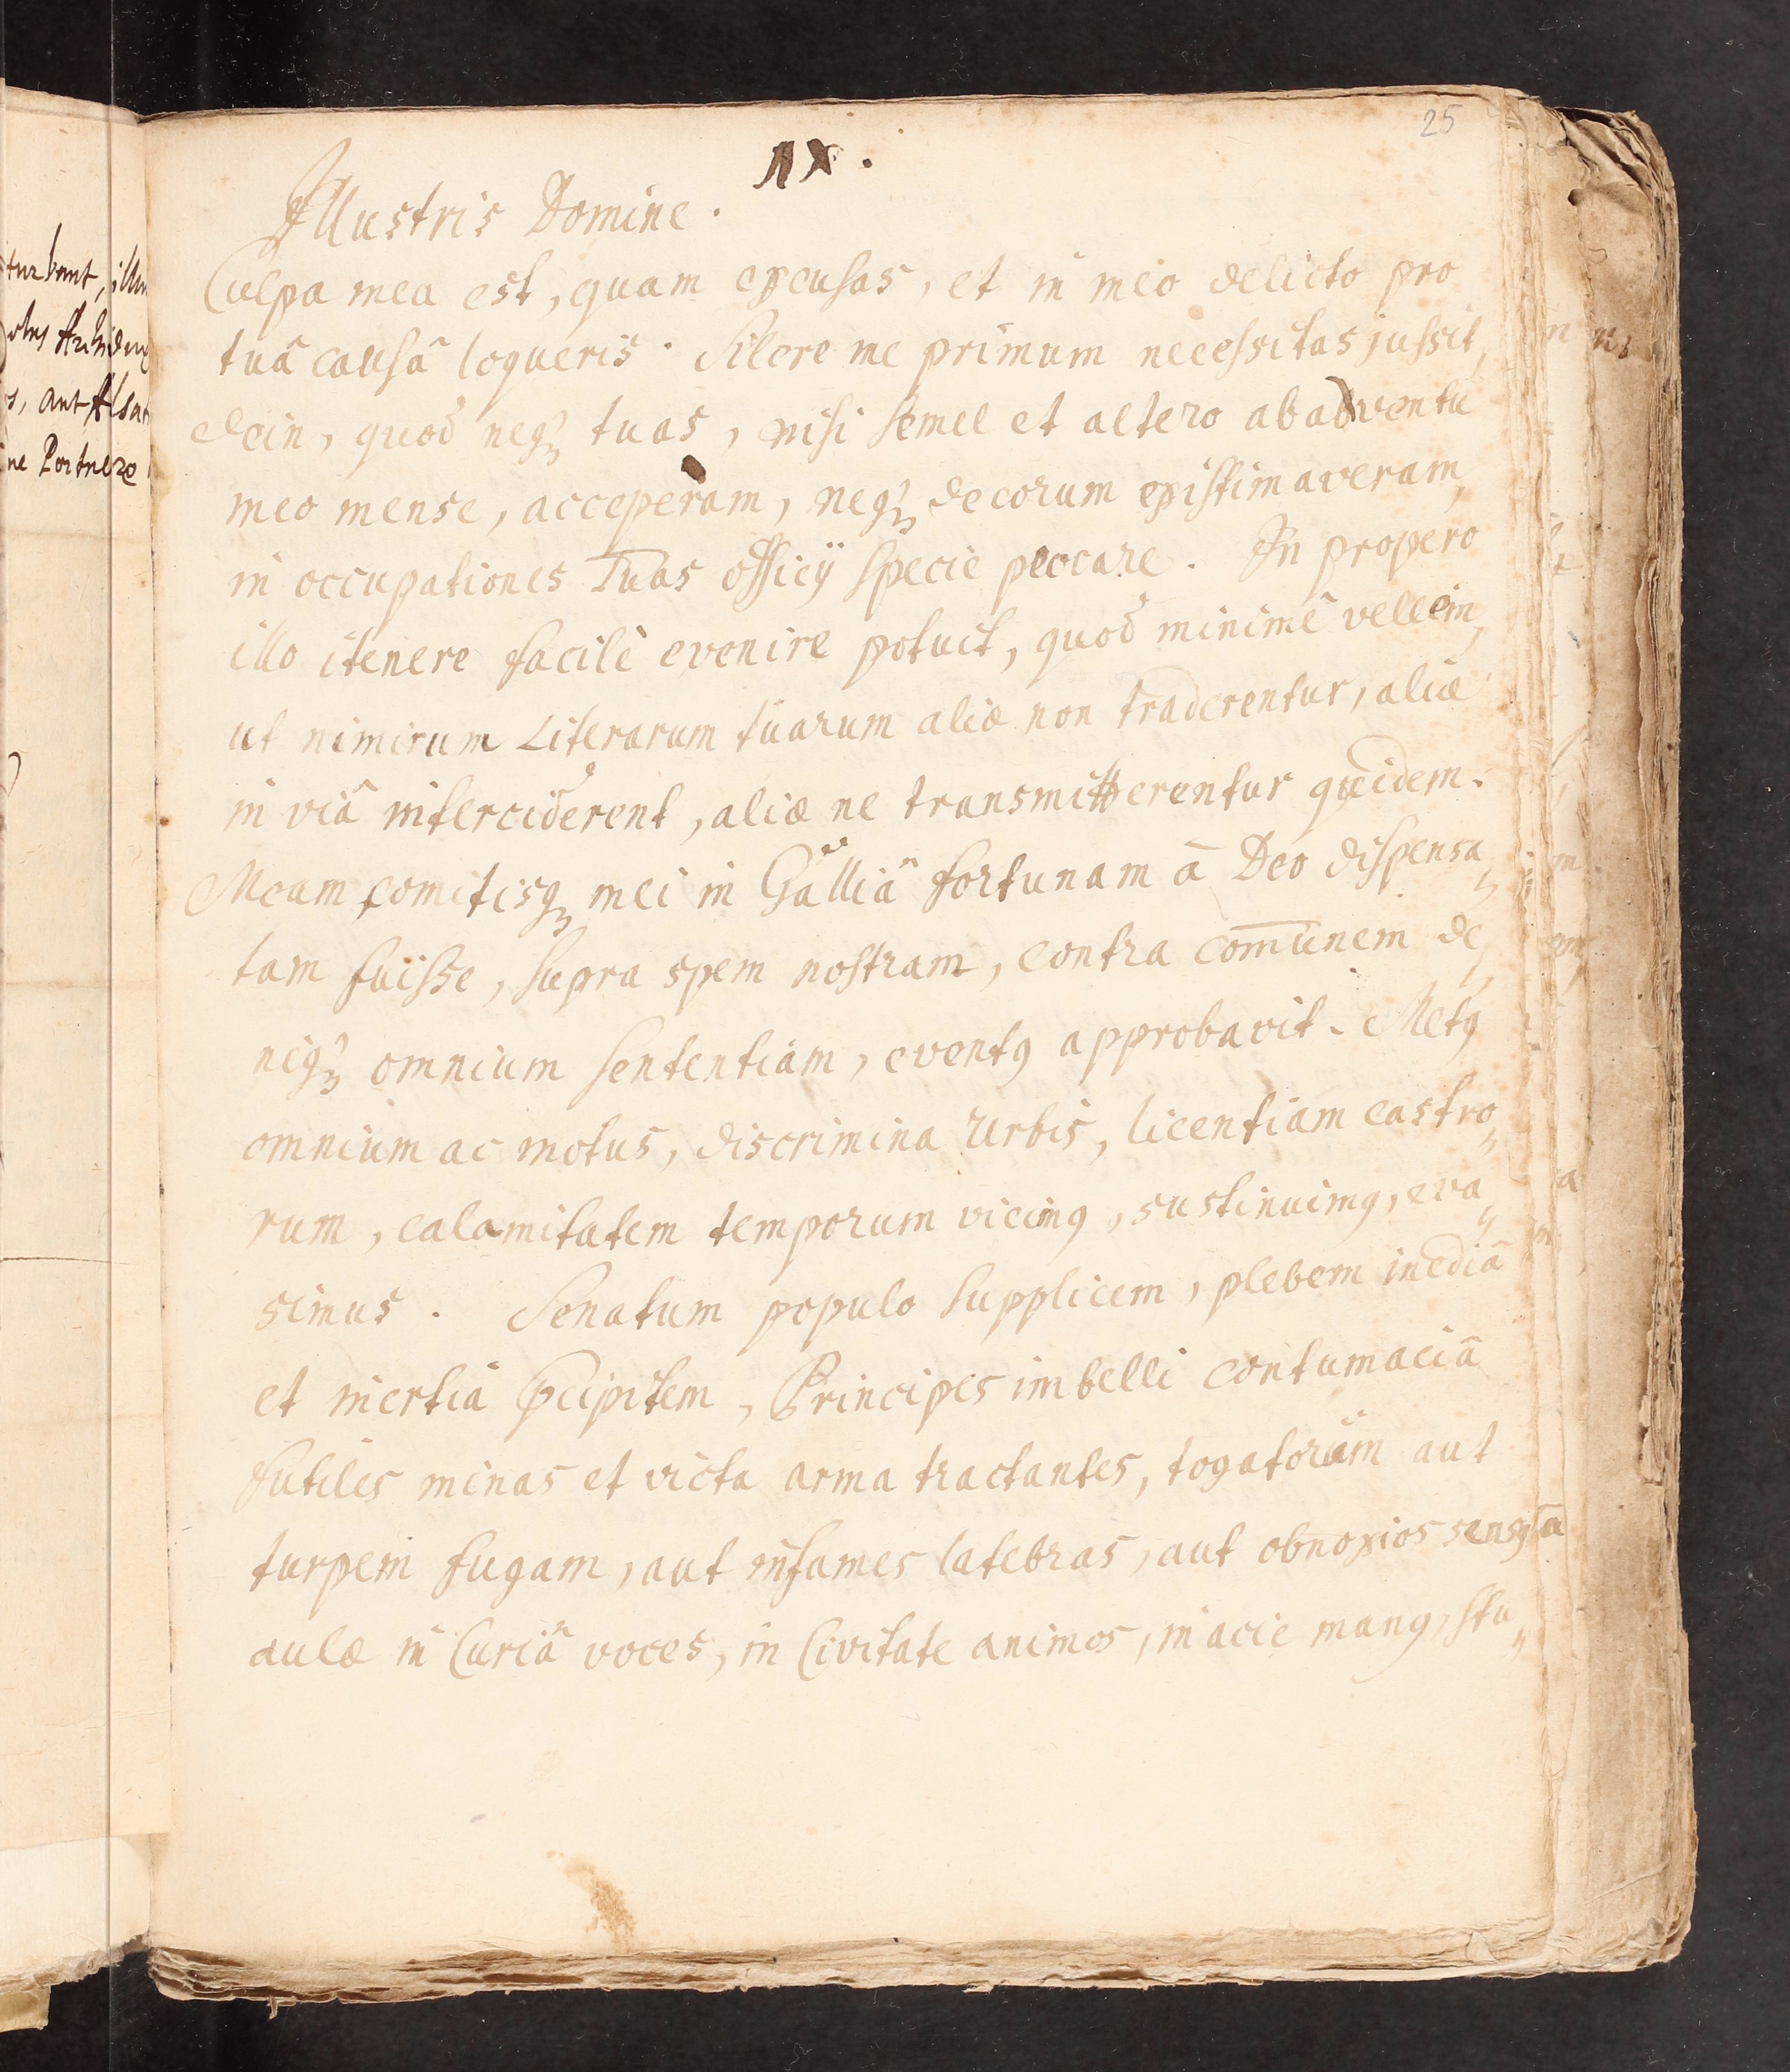 25
IX.
Illustris Domine.
Culpa mea est, quam excusas, et in meo delicto pro
tuâ causâ loqueris. Silere me primum necessitas jussit,
dein, quod neq₃ tuas, nisi semel et altero ab adventu
meo mense, acceperam, neq₃ decorum existimaveram,
in occupationes Tuas officij specie peccare. In propero
illo itenere facilè evenire potuit, quod minimê vellem,
ut nimirum Literarum tuarum aliæ non traderentur, aliæ
in viâ interciderent, aliæ ne transmitterentur quidem.
Meam comitisq₃ mei in Galliâ fortunam â Deo dispensa„
tam fuisse, supra spem nostram, contra com̄unem de„
niq₃ omnium sententiam, eventꝰ approbavit. Metꝰ
omnium ac motus, discrimina Urbis, licentiam castro„
rum, calamitatem temporum vicimꝰ, sustinuimꝰ, eva„
simus. Senatum populo supplicem, plebem inediâ
et inertiâ p̄cipitem, Principes imbelli contumaciâ
futiles minas et victa arma tractantes, togatorum aut
turpem fugam, aut infames latebras, aut obnoxios
aulæ in Curiâ voces, in Civitate animos, in acie manꝰ, stu„
turbant,
ne Portnero